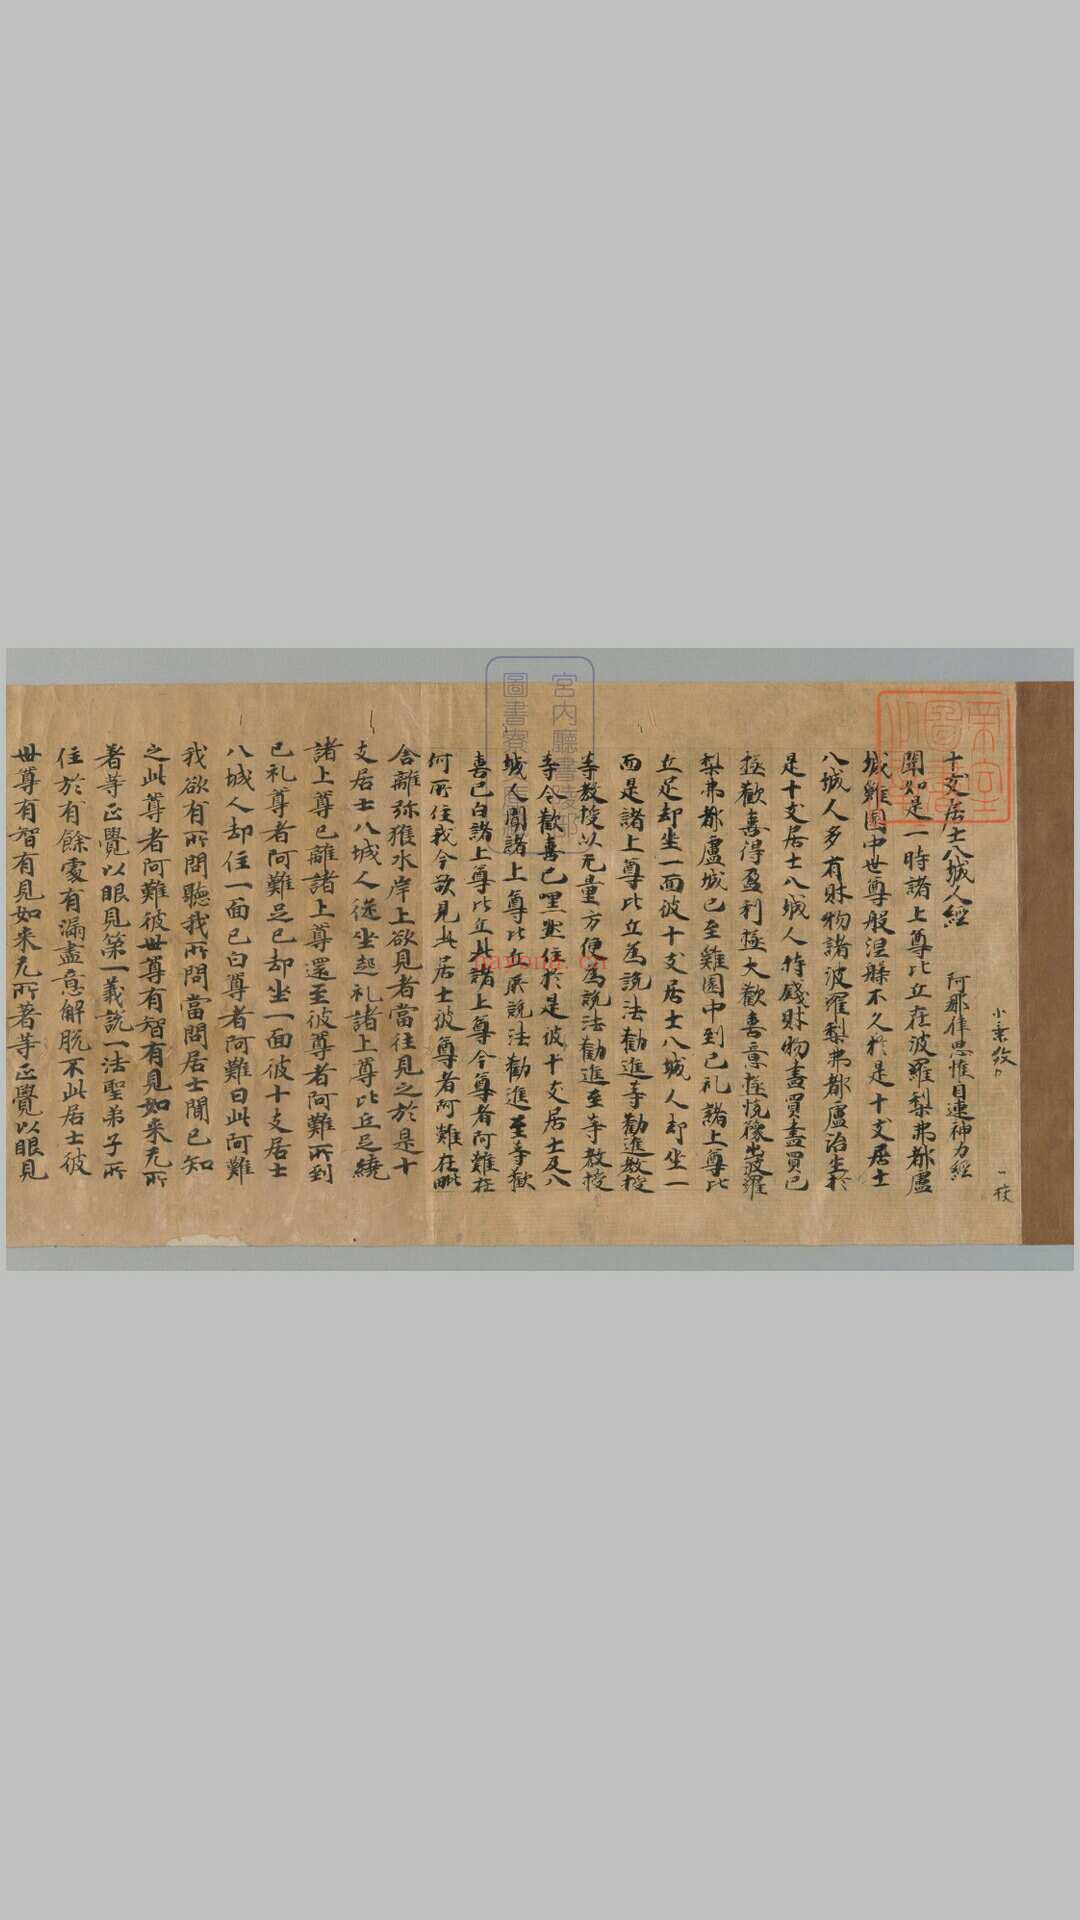 十支居士八城人經　阿那律思惟目連神力經
聞如是一時諸上尊比丘在波羅梨弗都盧
城雞園中世尊般涅槃不久於是十支居士
八城人多有財物諸波羅梨弗都盧治生於
是十支居士八城人持錢財物盡買盡買已
極歡喜得盈利極大歡喜意極悅豫出波羅
梨弗都盧城已至雞園中到已礼諸上尊比
丘足却坐一面彼十支居士八城人却坐一
面是諸上尊比丘為説法勸進等勸進教授
等教授以无量方便為説法勸進至等教授
等令歡喜已默然住於是彼十支居士及八
城人聞諸上尊比丘所説法勸進至等歡
喜已白諸上尊比丘此諸上尊今尊者阿難在
何所住我今欲見此居士彼尊者阿難在毗
舍離弥猴水岸上欲見者當往見之於是十
支居士八城人從坐起礼諸上尊比丘足繞
諸上尊已離諸上尊還至彼尊者阿難所到
已礼尊者阿難足已却坐一面彼十支居士
八城人却住一面已白尊者阿難曰此阿難
我欲有所問聽我所問當問居士聞已知
之此尊者阿難彼世尊有智有見如来无所
著等正覺以眼見第一義説一法聖弟子所
住於有餘處有漏盡意解脱不此居士彼
世尊有智有見如来无所著等正覺以眼見
一校
宮內廳書陵部
圖書寮
帝室圖書
nayona.cn